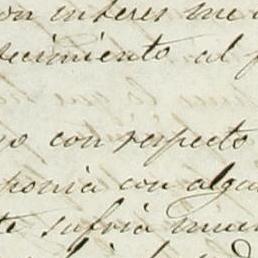 con interes me
ecimiento al
yo con respecto
ponia con algu
te sufria mu